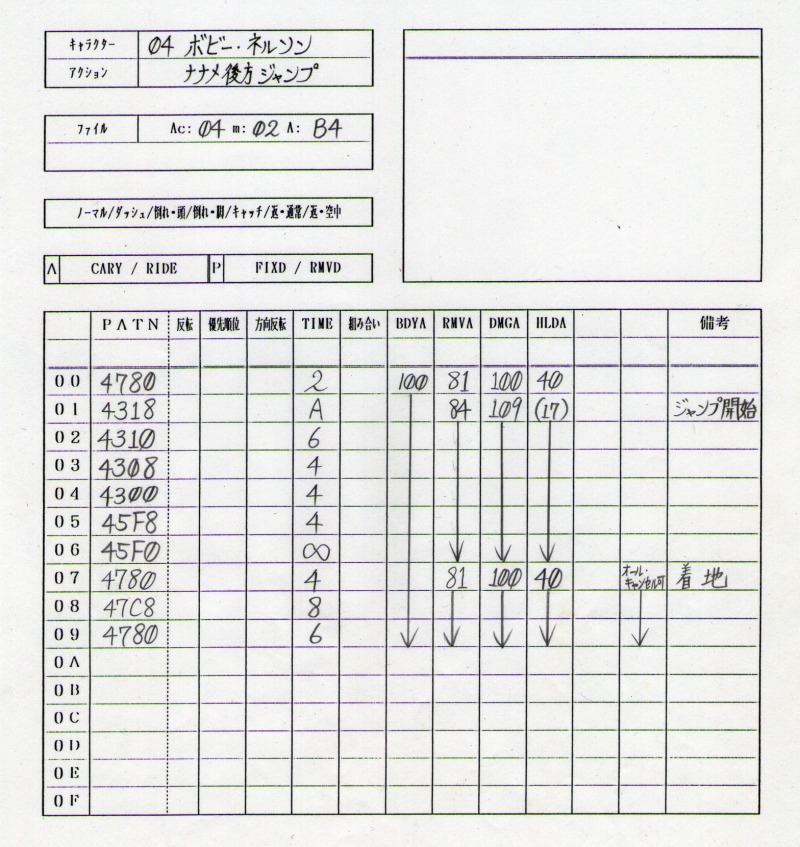 キャラクター 04 ボビー・ネルソン
アクション ナナメ後方ジャンプ
ファイル Ac: 04 m: 02 A: B4
ノーマル/ダッシュ/倒れ・頭/倒れ・脚/キャッチ/返・通常/返・空中
A CARY / RIDE P FIXD / RMVD
PATN 反転 優先順位 方向反転 TIME 組み合い BDYA RMVA DMGA HLDA 備考
00 4780 2 100 81 100 40
01 4318 A 84 109 (17) ジャンプ開始
02 4310 6
03 4308 4
04 4300 4
05 45F8 4
06 45F0 ∞
07 4780 4 81 100 40 オール・キャンセル可 着地
08 47C8 8
09 4780 6
0A
0B
0C
0D
0E
0F